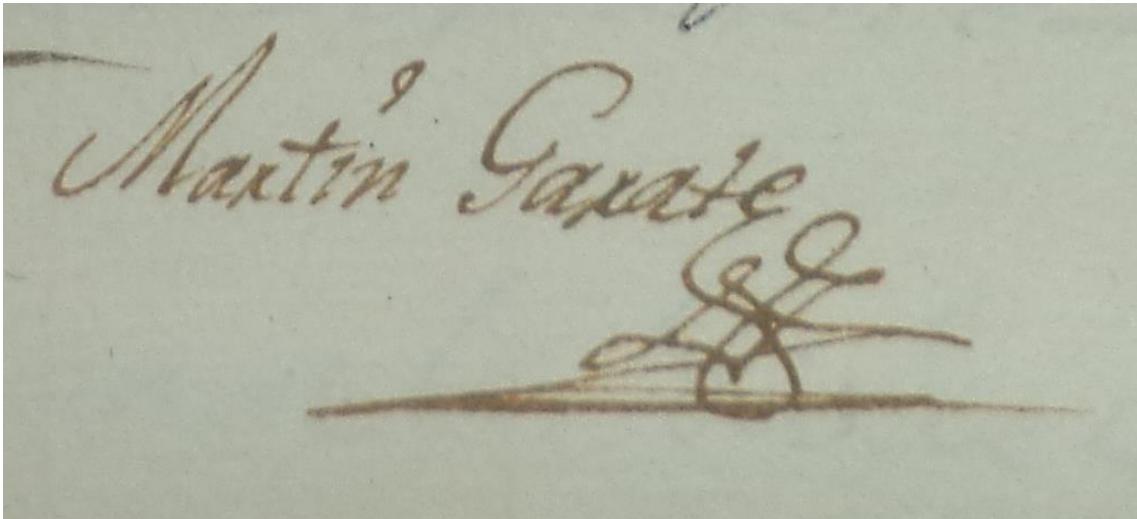 Martin Garate